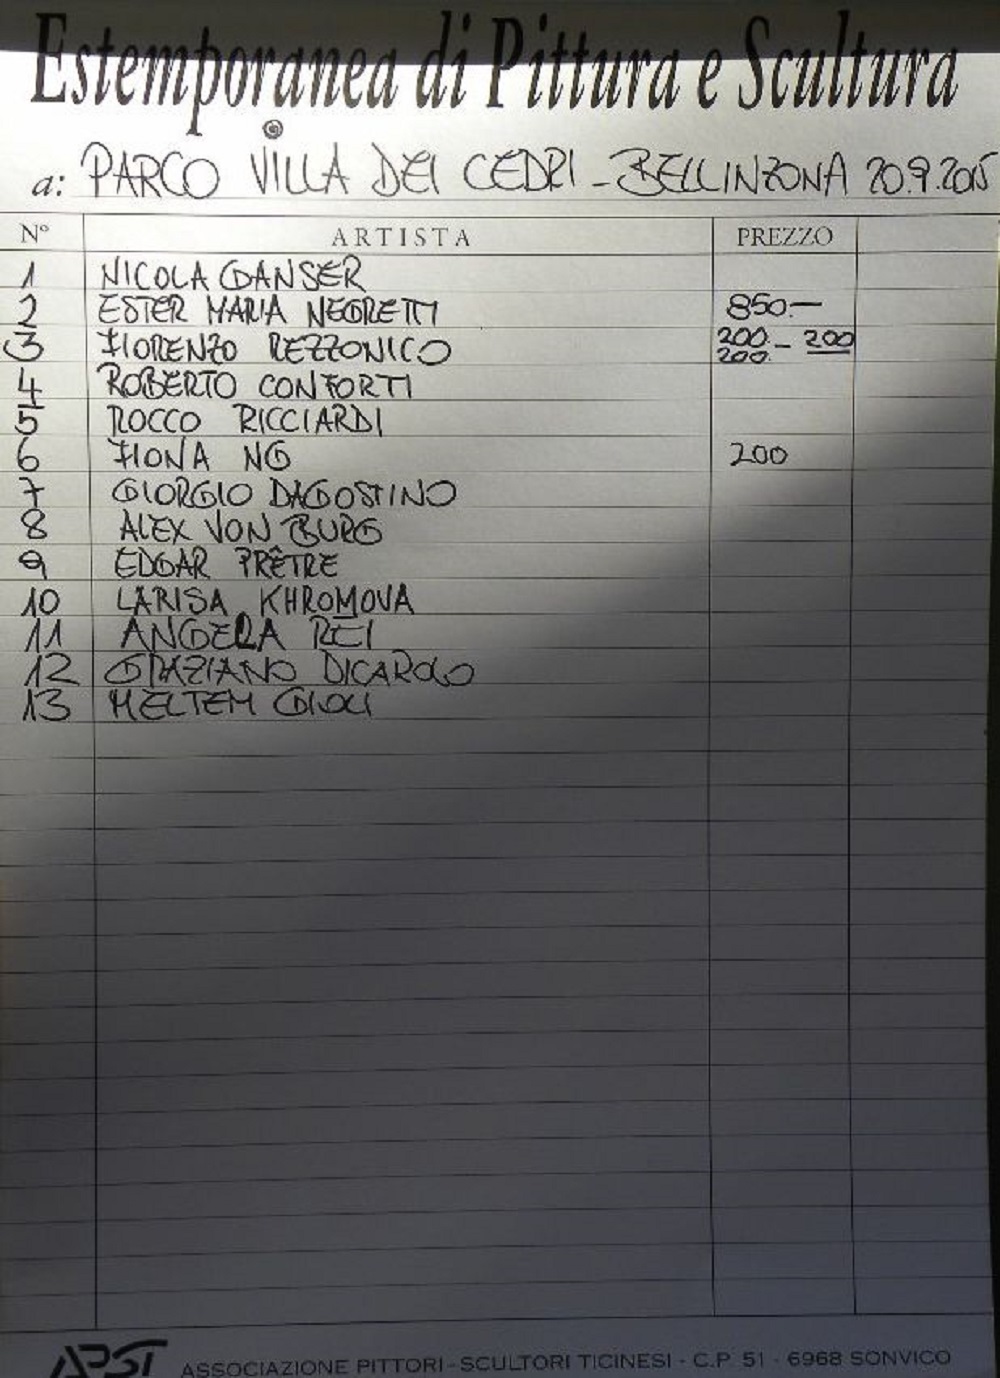 Estemporanea di Pittura e Scultura
a: PARCO VILLA DEI CEDRI - BELLINZONA 20.9.2015
N° ARTISTA PREZZO
1 NICOLA GANSER
2 ESTER MARIA NEGRETTI 850.-
3 FIORENZO REZZONICO 200.- 200
200.
4 ROBERTO CONFORTI
5 ROCCO RICCIARDI
6 FIONA NG 200
7 GIORGIO DAGOSTINO
8 ALEX VON BURG
9 EDGAR PRÊTRE
10 LARISA KHROMOVA
11 ANGELA REI
12 GRAZIANO DICAROLO
13 MELTEM GIOLI
APST ASSOCIAZIONE PITTORI-SCULTORI TICINESI - C.P. 51 - 6968 SONVICO